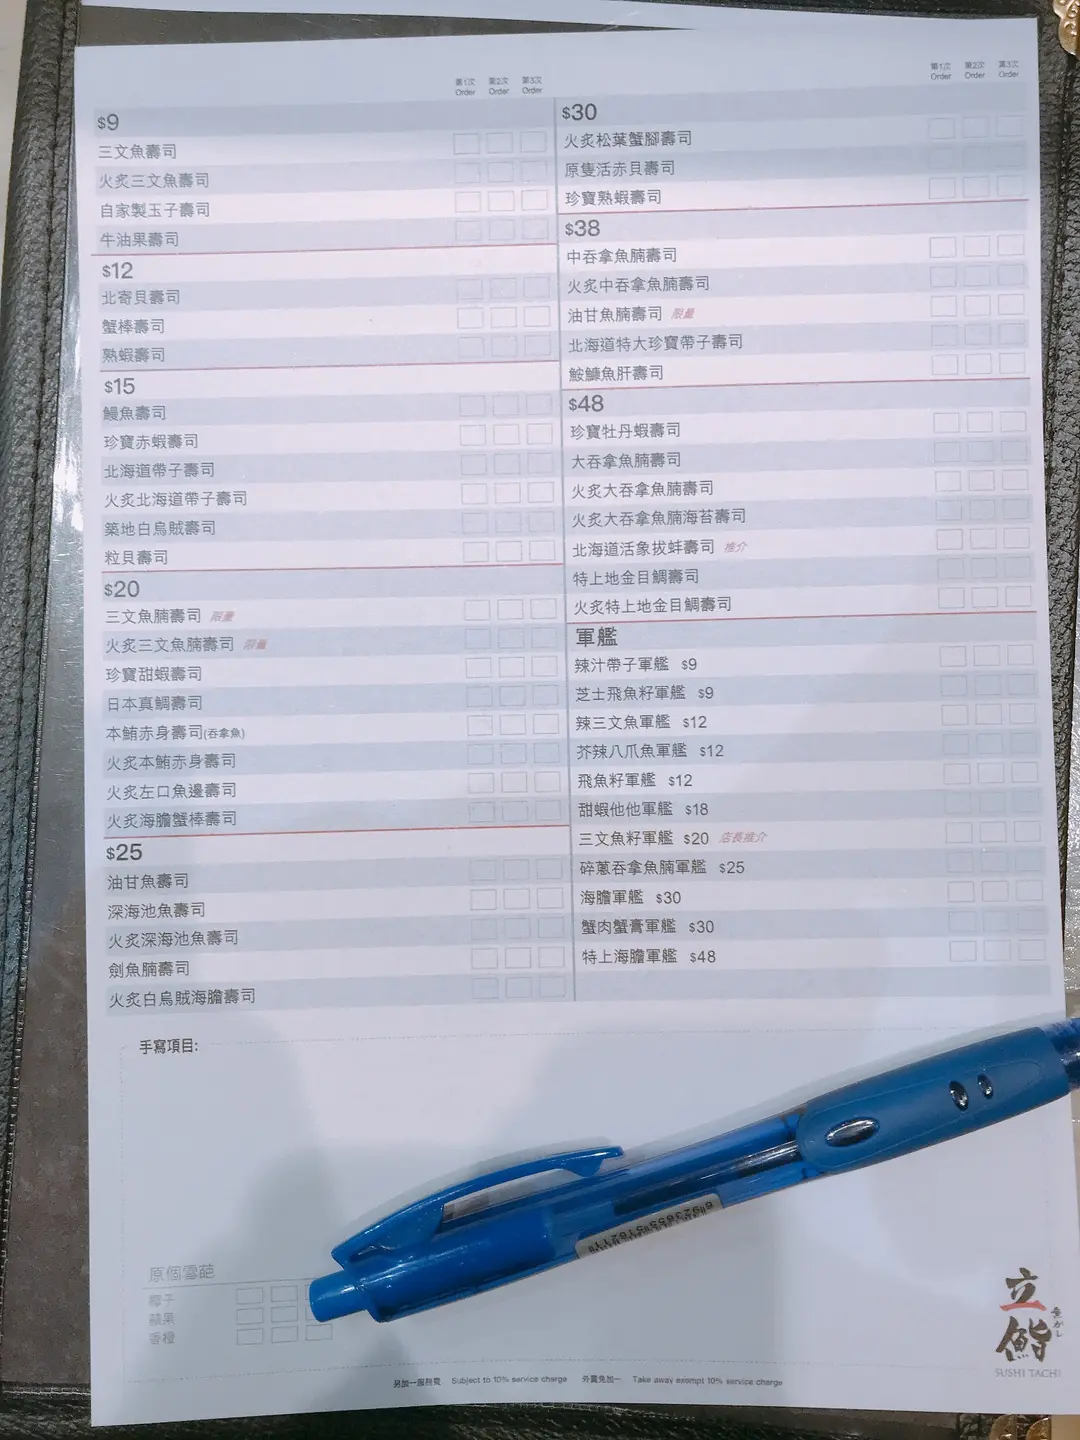 第1次 第2次 第3次
Order Order Order
$9
三文魚壽司
火炙三文魚壽司
自家製玉子壽司
牛油果壽司
$12
北寄貝壽司
蟹棒壽司
熟蝦壽司
$15
鰻魚壽司
珍寶赤蝦壽司
北海道帶子壽司
火炙北海道帶子壽司
築地白烏賊壽司
粒貝壽司
$20
三文魚腩壽司 限量
火炙三文魚腩壽司 限量
珍寶甜蝦壽司
日本真鯛壽司
本鮪赤身壽司(吞拿魚)
火炙本鮪赤身壽司
火炙左口魚邊壽司
火炙海膽蟹棒壽司
$25
油甘魚壽司
深海池魚壽司
火炙深海池魚壽司
劍魚腩壽司
火炙白烏賊海膽壽司
第1次 第2次 第3次
Order Order Order
$30
火炙松葉蟹腳壽司
原隻活赤貝壽司
珍寶熟蝦壽司
$38
中吞拿魚腩壽司
火炙中吞拿魚腩壽司
油甘魚腩壽司 限量
北海道特大珍寶帶子壽司
鮟鱇魚肝壽司
$48
珍寶牡丹蝦壽司
大吞拿魚腩壽司
火炙大吞拿魚腩壽司
火炙大吞拿魚腩海苔壽司
北海道活象拔蚌壽司 推介
特上地金目鯛壽司
火炙特上地金目鯛壽司
軍艦
辣汁帶子軍艦 $9
芝士飛魚籽軍艦 $9
辣三文魚軍艦 $12
芥辣八爪魚軍艦 $12
飛魚籽軍艦 $12
甜蝦他他軍艦 $18
三文魚籽軍艦 $20 店長推介
碎蔥吞拿魚腩軍艦 $25
海膽軍艦 $30
蟹肉蟹膏軍艦 $30
特上海膽軍艦 $48
手寫項目:
原個雪葩
椰子
蘋果
香橙
6923655151862777
立鮨
SUSHI TACHI
另加一服務費 Subject to 10% service charge 外賣免加一 Take away exempt 10% service charge